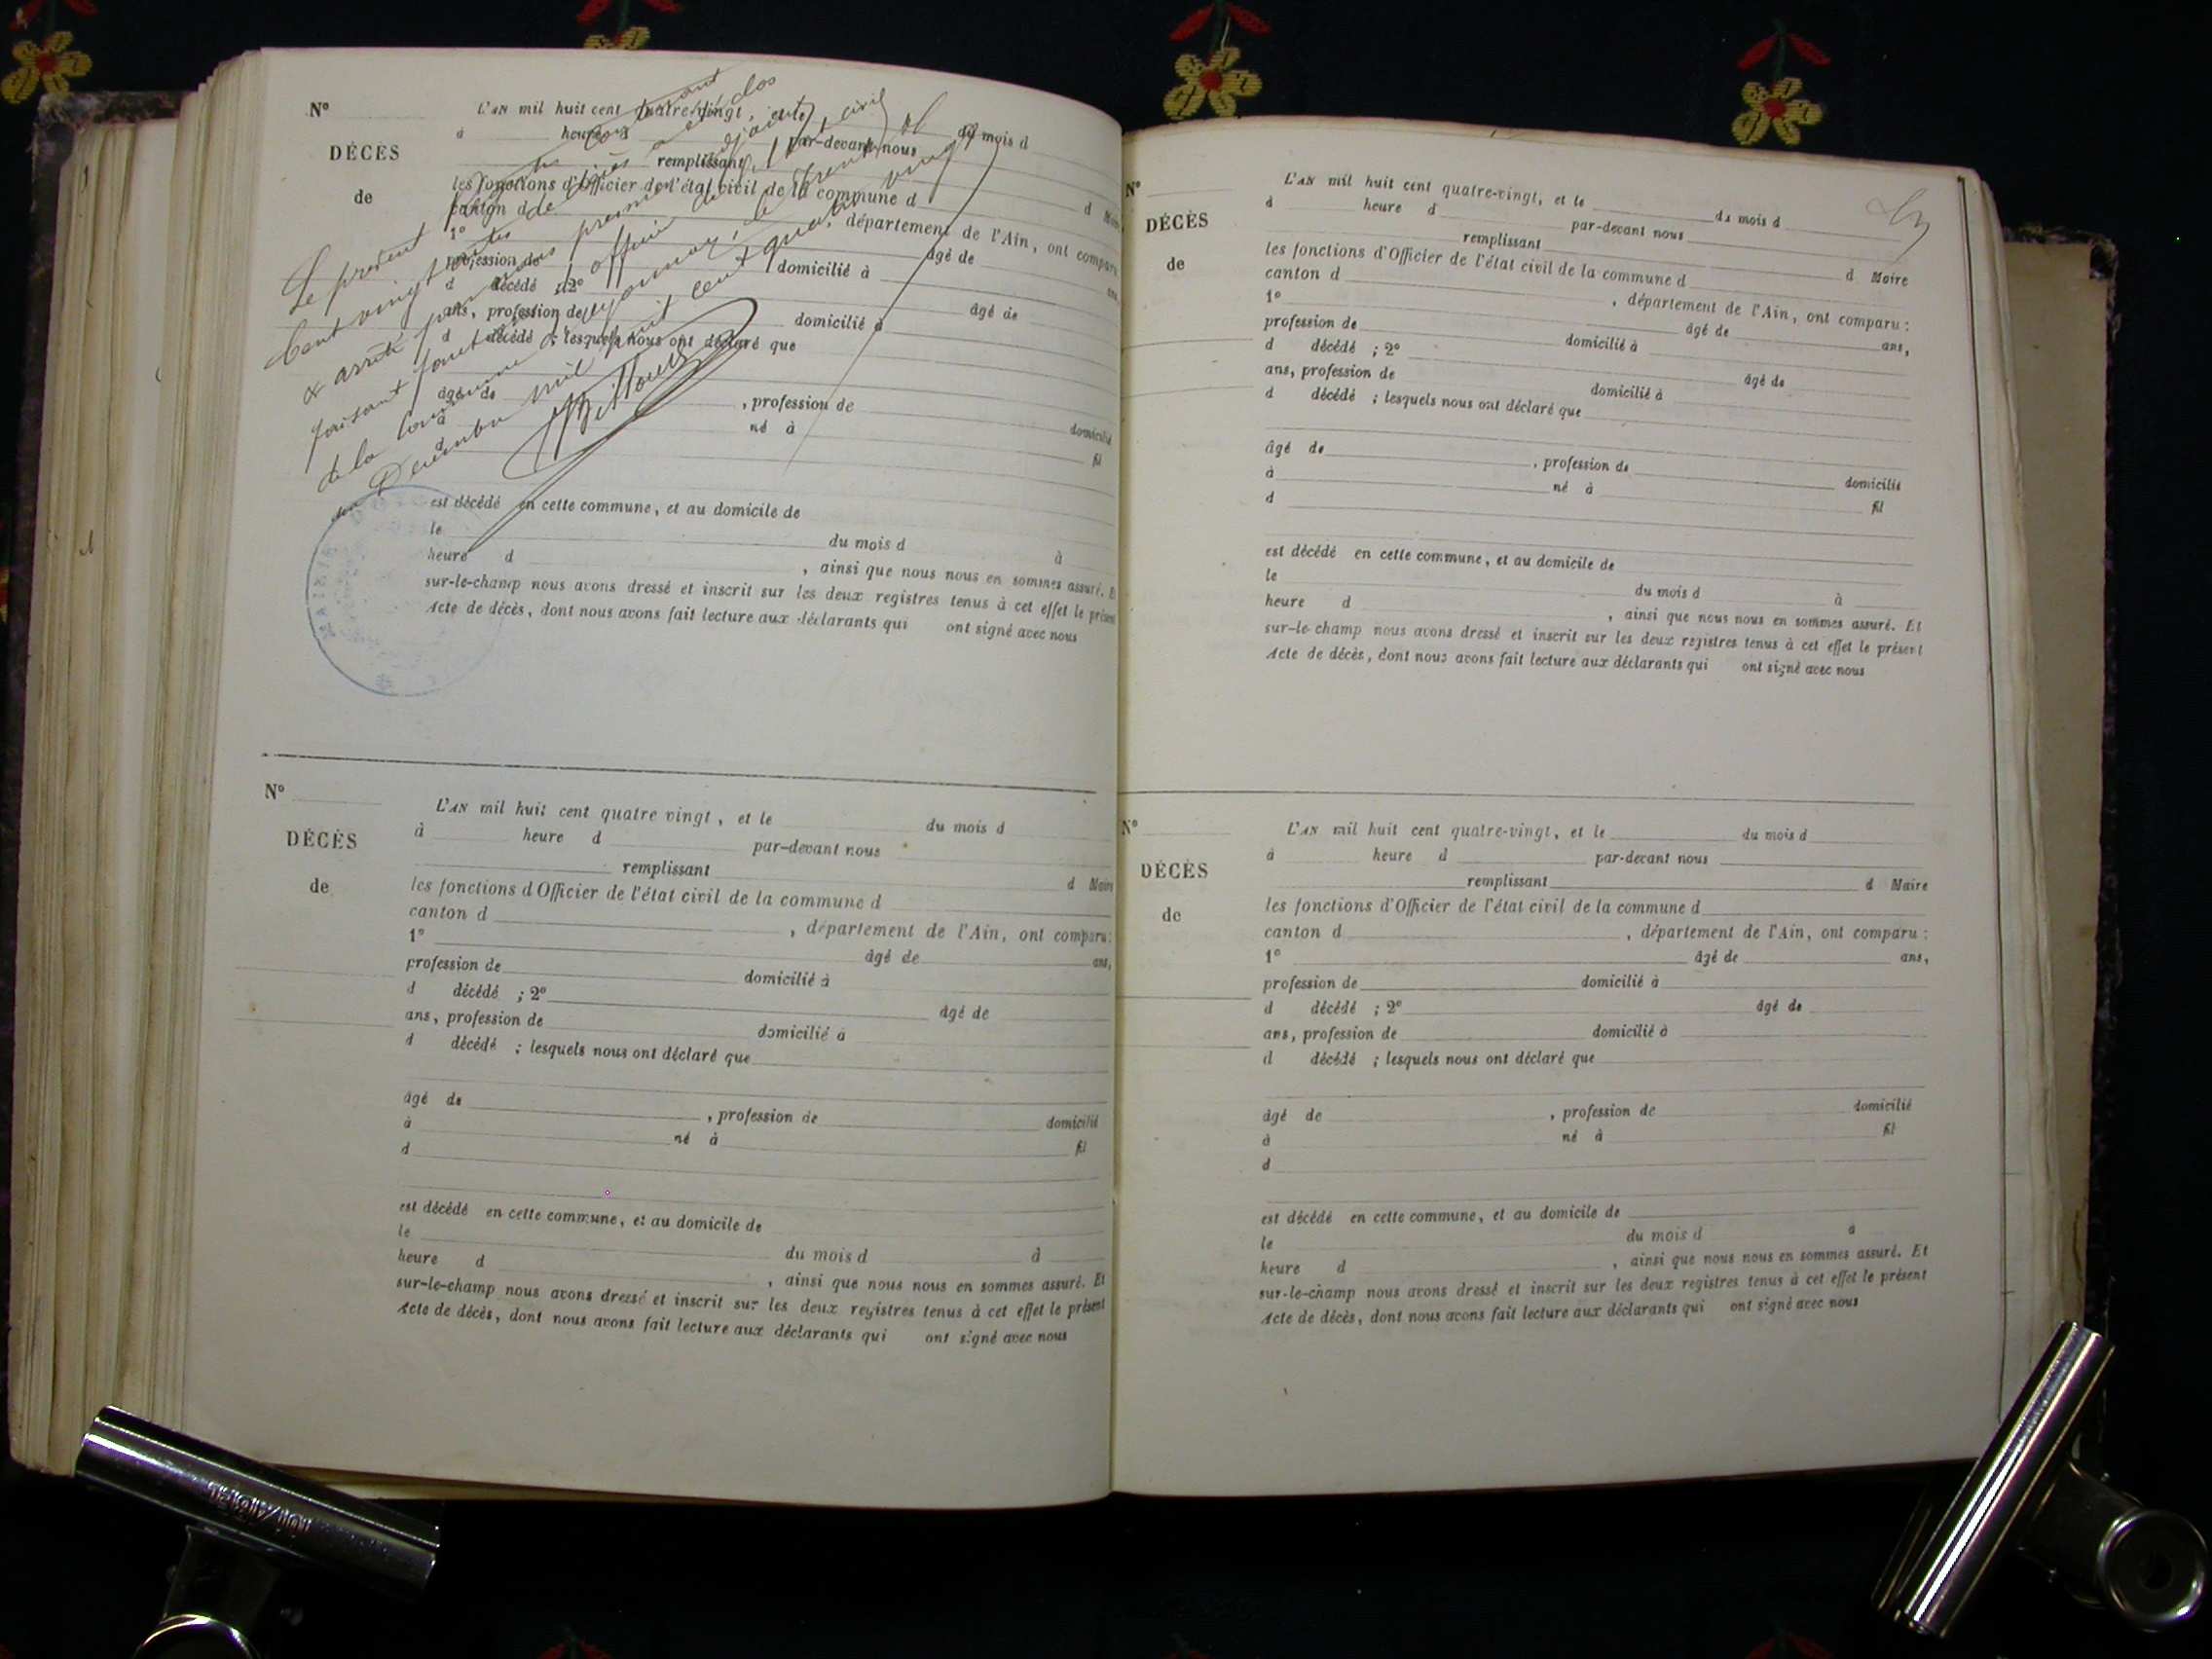 N°
DÉCÈS
de
L'AN mil huit cent quatre-vingt, et le
du mois d
à heure d par-devant nous
remplissant d Maire
les fonctions d'Officier de l'état civil de la commune d
canton d , département de l'Ain, ont comparu
1° âgé de ans,
profession de domicilié à
d décédé ; 2° âgé de
ans, profession de domicilié à
d décédé ; lesquels nous ont déclaré que
âgé de , profession de domicilié
à né à fil
est décédé en cette commune, et au domicile de
le du mois d à
heure d , ainsi que nous nous en sommes assuré. Et
sur-le-champ nous avons dressé et inscrit sur les deux registres tenus à cet effet le présent
Acte de décès, dont nous avons fait lecture aux déclarants qui ont signé avec nous
Le présent registre contenant
Cent vingt actes de décès a été clos
& arrêté par nous premier adjoint
faisant fonctions d'officier de l'état civil
de la commune d'Oyonnax, le trente et
Décembre mil huit cent quatre vingt
MAIRIE
N°
DÉCÈS
de
L'AN mil huit cent quatre vingt, et le du mois d
à heure d par-devant nous
remplissant d Maire
les fonctions d'Officier de l'état civil de la commune d
canton d , département de l'Ain, ont comparu:
1° âgé de ans,
profession de domicilié à
d décédé ; 2° âgé de
ans, profession de domicilié à
d décédé ; lesquels nous ont déclaré que
âgé de , profession de domicilié
à né à fil
d
est décédé en cette commune, et au domicile de
le du mois d à
heure d , ainsi que nous nous en sommes assuré. Et
sur-le-champ nous avons dressé et inscrit sur les deux registres tenus à cet effet le présent
Acte de décès, dont nous avons fait lecture aux déclarants qui ont signé avec nous
N°
DÉCÈS
de
L'AN mil huit cent quatre-vingt, et le du mois d
à heure d par-devant nous
remplissant d Maire
les fonctions d'Officier de l'état civil de la commune d
canton d , département de l'Ain, ont comparu :
1° âgé de ans,
profession de domicilié à
d décédé ; 2° âgé de
ans, profession de domicilié à
d décédé ; lesquels nous ont déclaré que
âgé de , profession de domicilié
à né à fil
d
est décédé en cette commune, et au domicile de
le du mois d à
heure d , ainsi que nous nous en sommes assuré. Et
sur-le-champ nous avons dressé et inscrit sur les deux registres tenus à cet effet le présent
Acte de décès, dont nous avons fait lecture aux déclarants qui ont signé avec nous
N°
DÉCÈS
de
L'AN mil huit cent quatre-vingt, et le du mois d
à heure d par-devant nous
remplissant d Maire
les fonctions d'Officier de l'état civil de la commune d
canton d , département de l'Ain, ont comparu :
1° âgé de ans,
profession de domicilié à
d décédé ; 2° âgé de
ans, profession de domicilié à
d décédé ; lesquels nous ont déclaré que
âgé de , profession de domicilié
à né à fil
d
est décédé en cette commune, et au domicile de
le du mois d à
heure d , ainsi que nous nous en sommes assuré. Et
sur-le-champ nous avons dressé et inscrit sur les deux registres tenus à cet effet le présent
Acte de décès, dont nous avons fait lecture aux déclarants qui ont signé avec nous